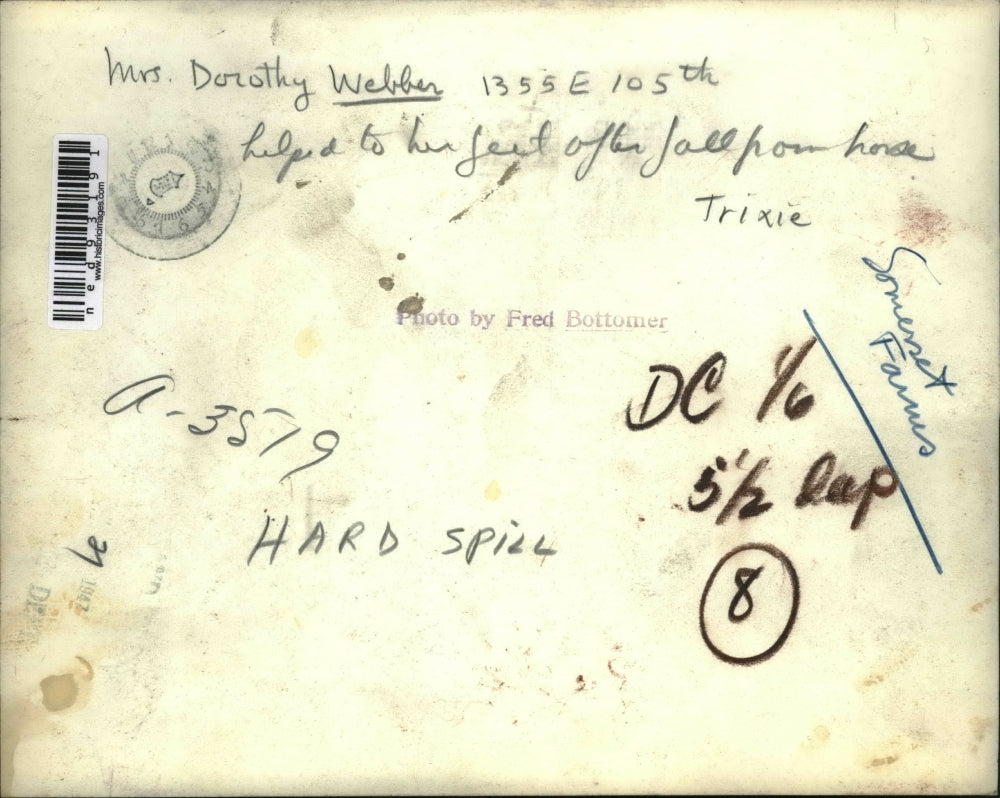 Mrs. Dorothy Webber 1355 E 105th
helped to her feet after fall from horse
Trixie
ned93191
www.historicimages.com
Photo by Fred Bottomer
Somerset
Farms
DC 1/6
a-3579
5 1/2 deep
HARD SPILL
8
1947